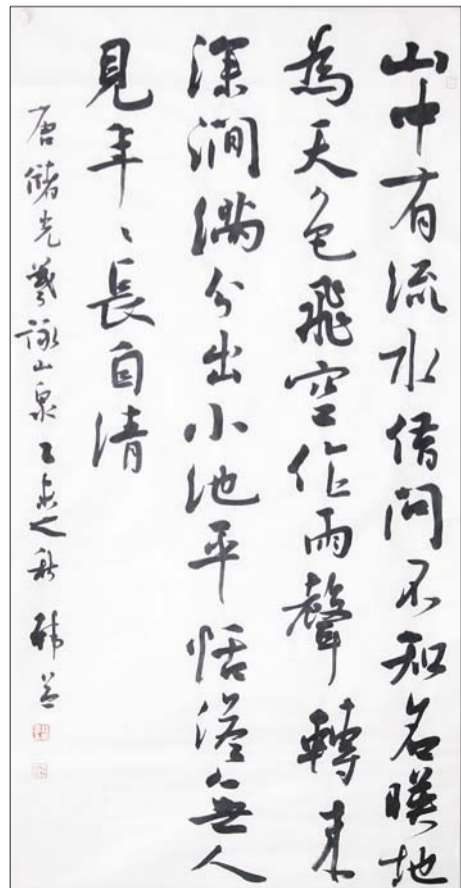 山中有流水借问不知名暎地
為天色飛空作雨聲轉来
深澗満分出小池平恬澹無人
見年〻長自清
唐儲光羲詠山泉 秋